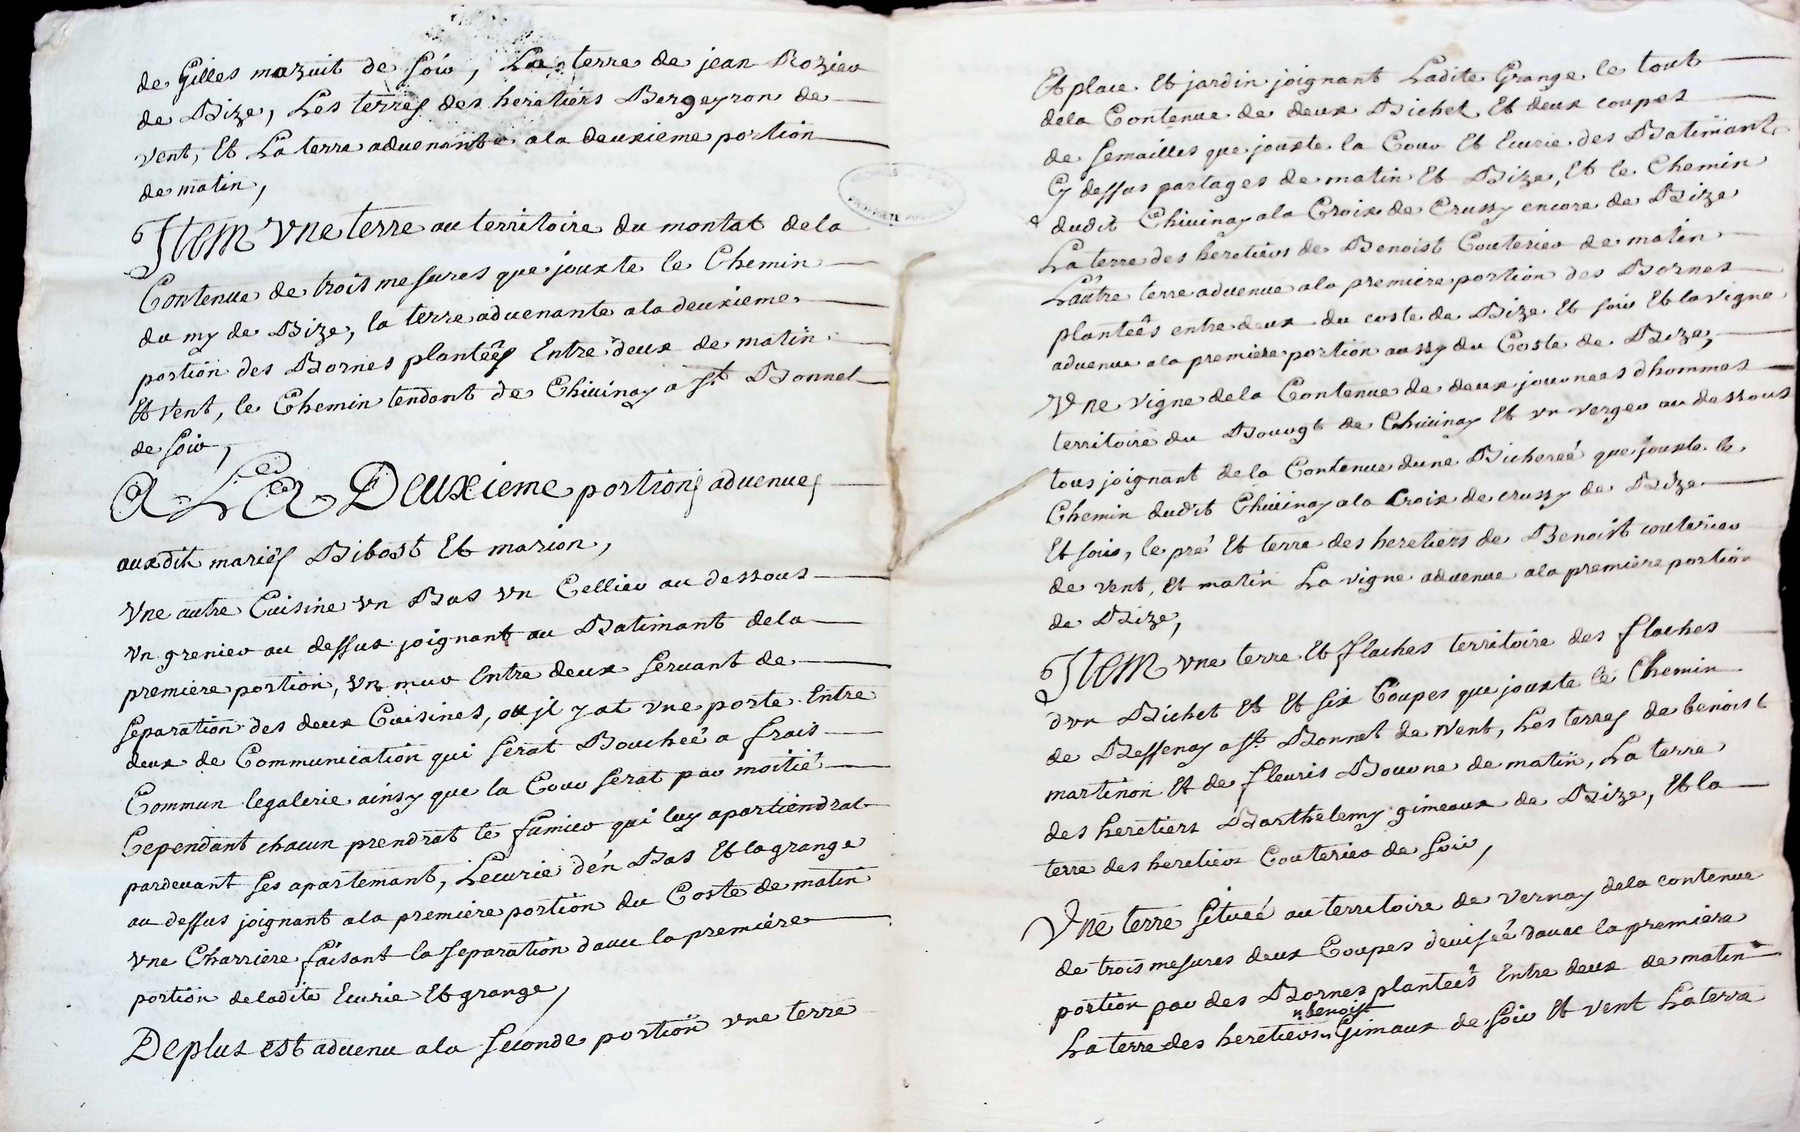 de Gilles mazuit de soir, La terre de jean Rozier
de Bize, Les terres des heretiers Bergeyron de
vent, Et La terre advenante ala deuxieme portion
de matin,
Item Vne terre au territoire du montat dela
Contenue de trois mesures que jouxte le Chemin
du my de Bize, la terre advenante ala deuxieme
portion des Bornes plantéés Entre deux de matin
Et vent, le Chemin tendant de Chivinay a St Bonnet
de soir,
A LA Deuxieme portion advenue
auxdit mariés Bibost Et marion,
Vne autre Cuisine vn Bas vn Cellier au dessous
vn grenier au dessus joignant au Batimant dela
premiere portion, vn mur Entre deux servant de
separation des deux Cuisines, ou jl y at vne porte Entre
deux de Communication qui serat Bouchéé a frais
Commun legalerie ainsy que la Cour serat par moitié
Cependant chacun prendrat le fumier qui luy apartiendrat
pardevant ses apartemant, Lecurie d'en Bas Et la grange
au dessus joignant ala premiere portion du Coste de matin
vne Charriere faisant la separation davec la premiere
portion deladite Ecurie Et grange,
De plus est advenu ala seconde portion vne terre
Et place Et jardin joignant Ladite Grange le tout
dela Contenue de deux Bichet Et deux coupes
de semailles que jouxte la Cour Et Ecurie des Batimant
Cy dessus partages de matin Et Bize, Et le Chemin
dudit Chivinay ala Croix de Crussy encore de Bize
La terre des heretiers de Benoist Couterier de matin
L'autre terre advenue ala premiere portion des Bornes
plantéés entre deux du coste de Bize Et soir Et la vigne
advenue ala premiere portion aussy du Coste de Bize,
Vne vigne dela Contenue de deux journees dhommes
territoire du Bouvgt de Chivinay Et vn verger au dessous
tous joignant de la Contenue dune Bichereé que jouxte le
Chemin dudit Chivinay ala Croix de crussy de Bize
Et soir, le pré Et terre des heretiers de Benoist couterier
de vent, Et matin La vigne advenue ala premiere portion
de Bize,
Item vne terre Et flaches territoire des flaches
dvn Bichet Et Et six Coupes que jouxte le Chemin
de Bessenay a St Bonnet de vent, Les terres de benoist
martinon Et de fleuris Bouvne de matin, La terre
des heretiers Barthelemy gimeaux de Bize, Et la
terre des heretiers Couterier de soir,
Vne terre situéé au territoire de vernay dela contenue
de trois mesures deux Coupes deviséé davac la premiere
portion par des Bornes plantéés Entre deux de matin
" benoist
La terre des heretiers " Gimaux de soir Et vent La terre